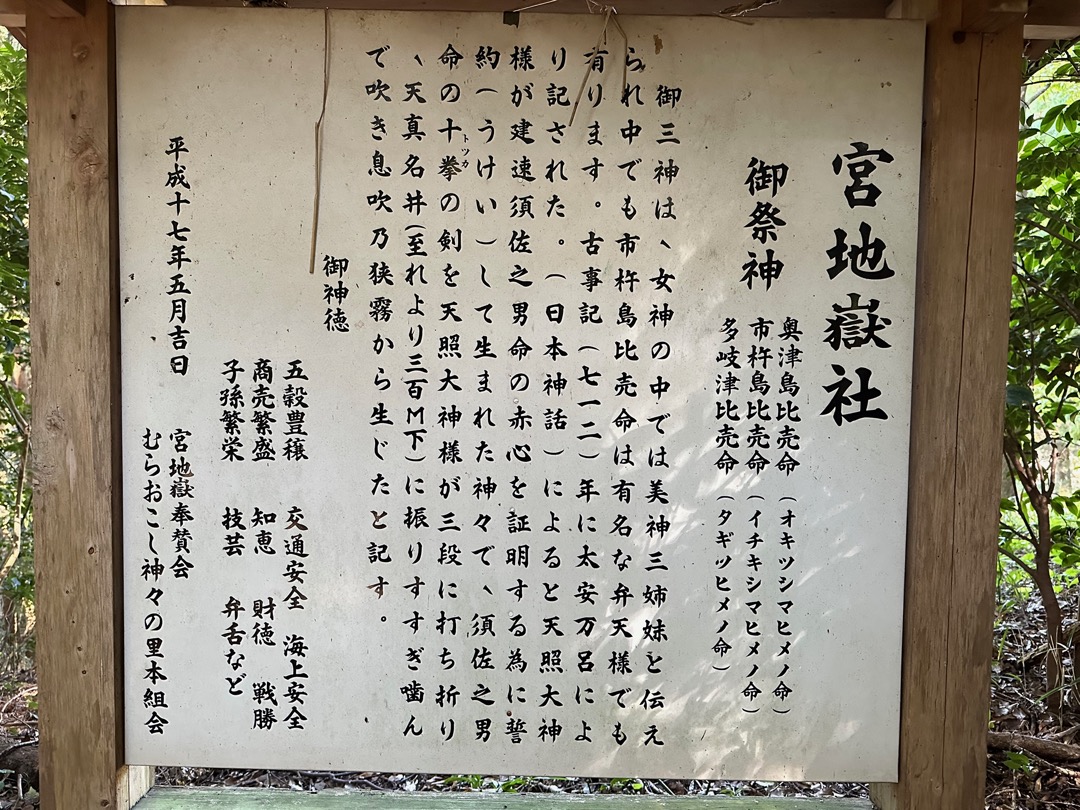 宮地嶽社
御祭神
奥津島比売命（オキツシマヒメノ命）
市杵島比売命（イチキシマヒメノ命）
多岐津比売命（タギツヒメノ命）
御三神は、女神の中では美神三姉妹と伝え
られ中でも市杵島比売命は有名な弁天様でも
有ります。古事記（七一二）年に太安万呂によ
り記された。（日本神話）によると天照大神
様が建速須佐之男命の赤心を証明する為に誓
約（うけい）して生まれた神々で、須佐之男
命の十拳トツカの剣を天照大神様が三段に打ち折り
、天真名井(至れより三百M下)に振りすすぎ噛ん
で吹き息吹乃狭霧から生じたと記す。
御神徳
五穀豊穣 交通安全 海上安全
商売繁盛 知恵 財徳 戦勝
子孫繁栄 技芸 弁舌など
平成十七年五月吉日
宮地嶽奉賛会
むらおこし神々の里本組会